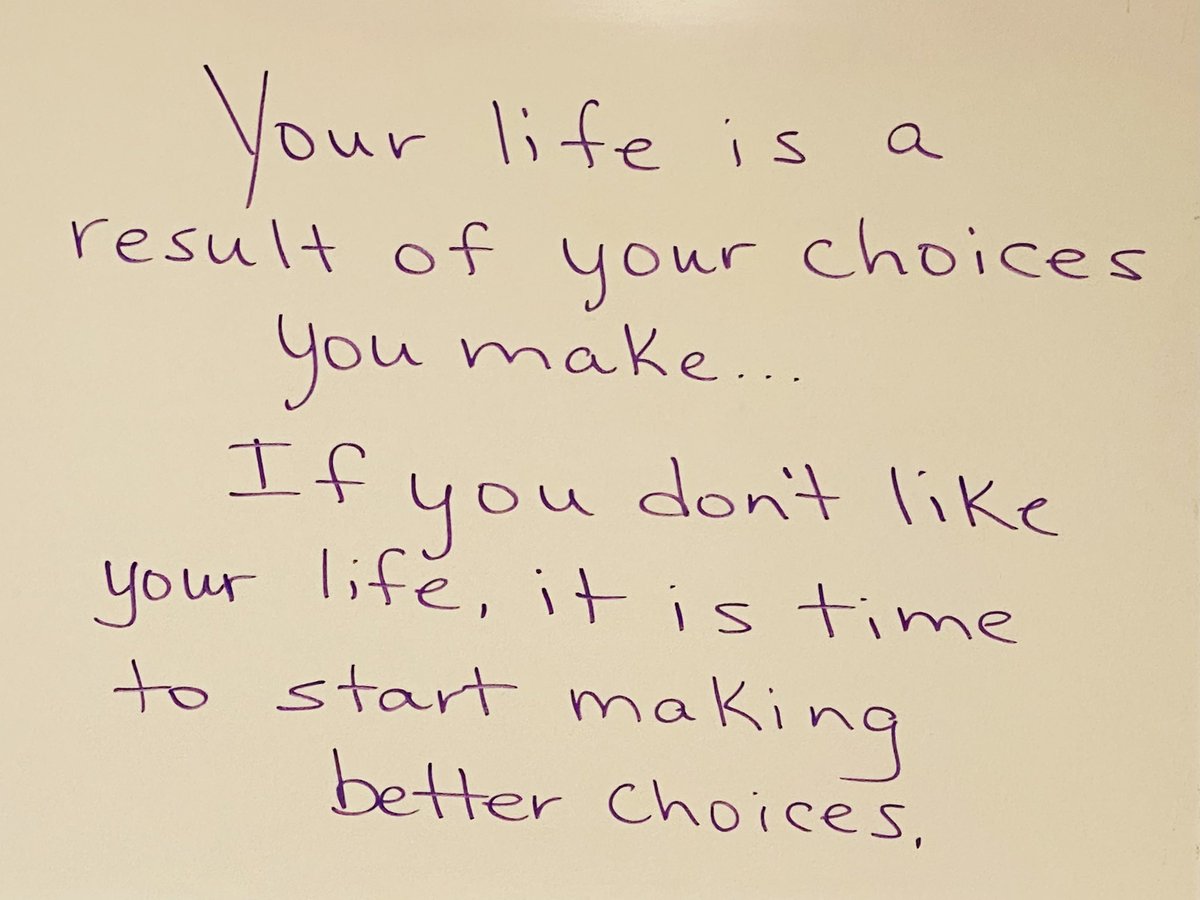 Your life is a
result of your choices
you make...
If you don't like
your life, it is time
to start making
better choices.